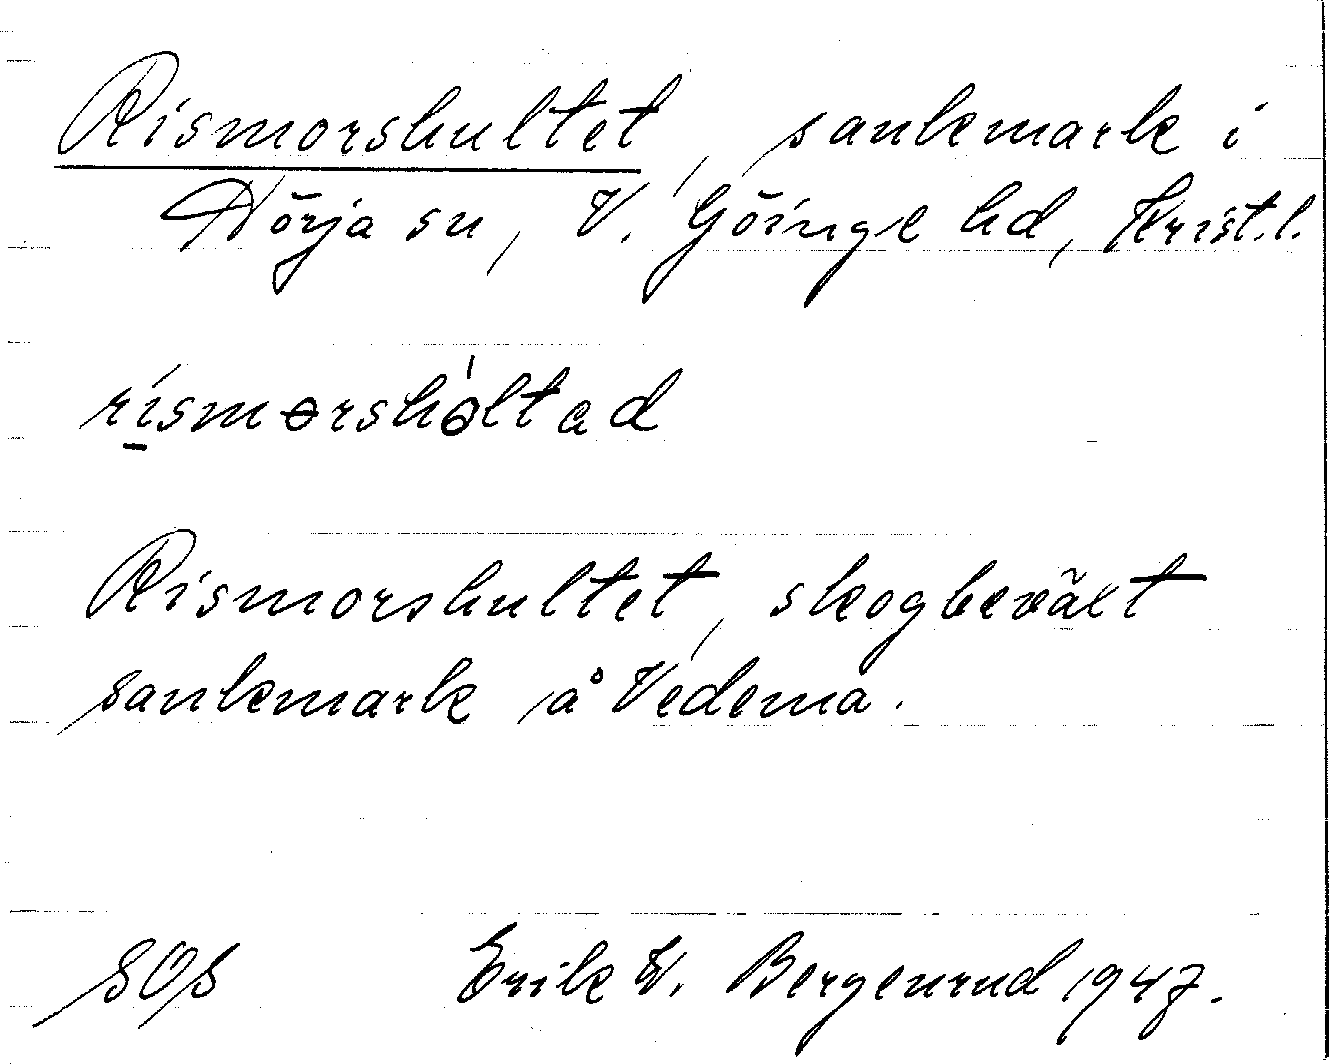 Rismorshultet, sankmark i
Nörja sn, V. Göinge hd, Krist.l.
rismɵrshɵ́ltad
Rismorshultet, skogbeväxt
sankmark å Vedema.
SOS Erik W. Bergenrud 1947.